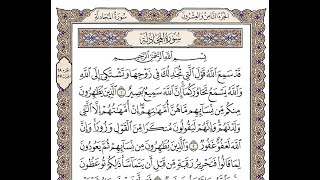 الجزء الثامن والعشرون
سورة المجادلة
سُورَةُ المُجَادلَةِ
بِسْمِ اللَّهِ الرَّحْمَٰنِ الرَّحِيمِ
قَدْ سَمِعَ اللَّهُ قَوْلَ الَّتِي تُجَادِلُكَ فِي زَوْجِهَا وَتَشْتَكِي إِلَى اللَّهِ
وَاللَّهُ يَسْمَعُ تَحَاوُرَكُمَا إِنَّ اللَّهَ سَمِيعٌ بَصِيرٌ ١ الَّذِينَ يُظَاهِرُونَ
مِنكُم مِّن نِّسَائِهِم مَّا هُنَّ أُمَّهَاتِهِمْ إِنْ أُمَّهَاتُهُمْ إِلَّا الَّٰٓـِٔي
وَلَدْنَهُمْ وَإِنَّهُمْ لَيَقُولُونَ مُنكَرًا مِّنَ الْقَوْلِ وَزُورًا وَإِنَّ
اللَّهَ لَعَفُوٌّ غَفُورٌ ٢ وَالَّذِينَ يُظَاهِرُونَ مِن نِّسَائِهِمْ ثُمَّ يَعُودُونَ
لِمَا قَالُوا فَتَحْرِيرُ رَقَبَةٍ مِّن قَبْلِ أَن يَتَمَاسَّا ذَٰلِكُمْ تُوعَظُونَ